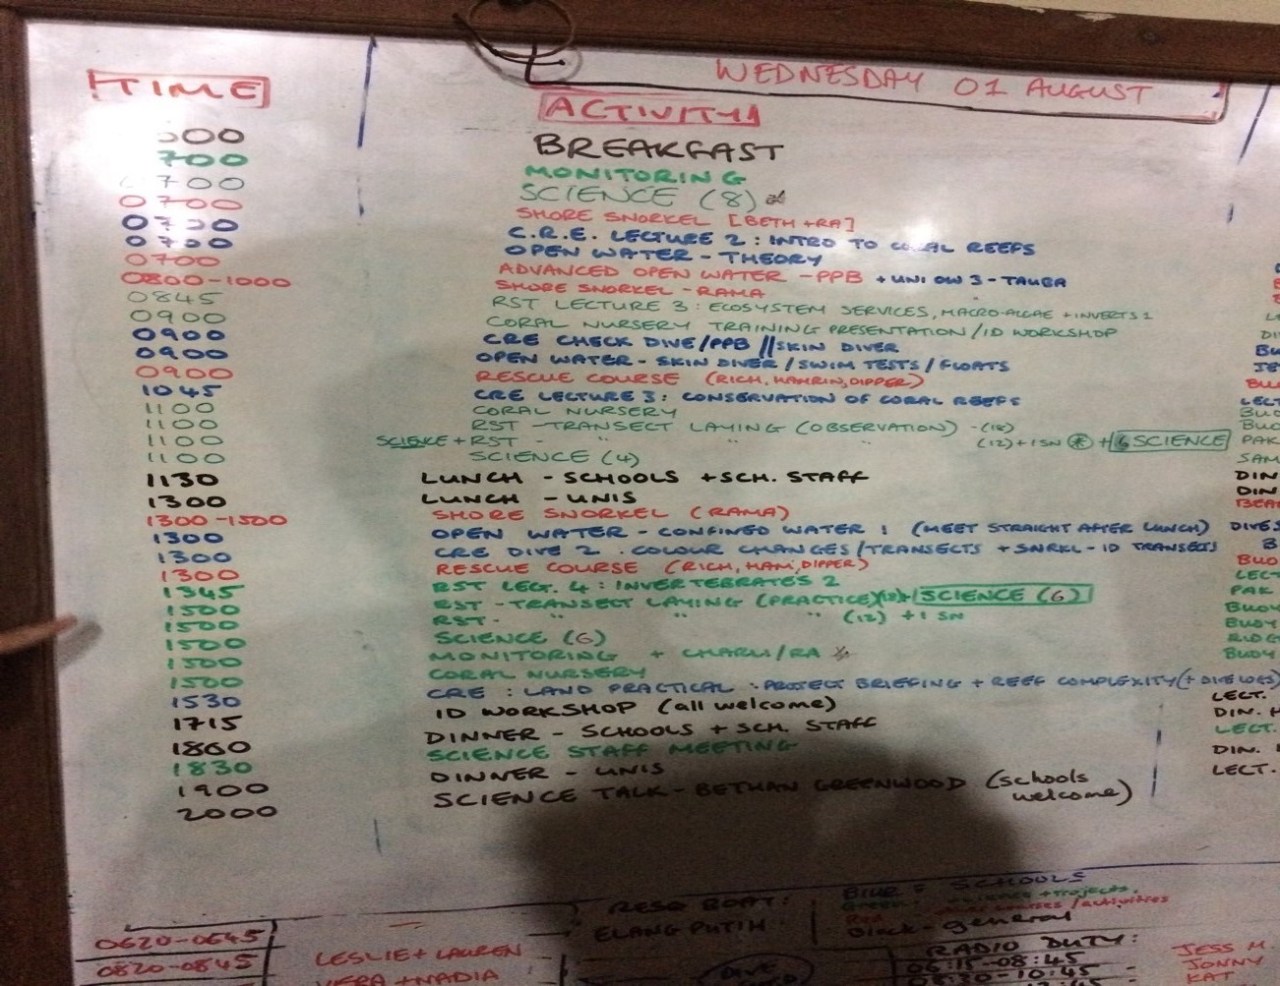 WEDNESDAY 01 AUGUST
TIME ACTIVITY
600 BREAKFAST
700 MONITORING
0700 SCIENCE (8)
0700 SHORE SNORKEL [BETH + RA]
0730 C.R.E. LECTURE 2 : INTRO TO CORAL REEFS
0700 OPEN WATER - THEORY
0700 ADVANCED OPEN WATER - PPB + UNI OW 3 - TAUBA
0800-1000 SHORE SNORKEL - RAMA
0845 RST LECTURE 3 : ECOSYSTEM SERVICES, MACRO-ALGAE + INVERTS 1
0900 CORAL NURSERY TRAINING PRESENTATION / ID WORKSHOP
0900 CRE CHECK DIVE/PPB // SKIN DIVER
0900 OPEN WATER - SKIN DIVER / SWIM TESTS / FLOATS
0900 RESCUE COURSE (RICH, HAMRIN, DIPPER)
1045 CRE LECTURE 3: CONSERVATION OF CORAL REEFS
1100 CORAL NURSERY
1100 RST - TRANSECT LAYING (OBSERVATION) - (12)
1100 SCIENCE + RST - " " " (12) + 1 SN + 6 SCIENCE
1100 SCIENCE (4)
1130 LUNCH - SCHOOLS + SCH. STAFF
1300 LUNCH - UNIS
1300-1500 SHORE SNORKEL (RAMA)
1300 OPEN WATER - CONFINED WATER 1 (MEET STRAIGHT AFTER LUNCH)
1300 CRE DIVE 2 : COLOUR CHANGES/TRANSECTS + SNRKL - ID TRANSECTS
1300 RESCUE COURSE (RICH, HAM, DIPPER)
1345 RST LECT. 4 : INVERTEBRATES 2
1500 RST - TRANSECT LAYING (PRACTICE) SCIENCE (6)
1500 RST - " " (12) + 1 SN
1500 SCIENCE (6)
1500 MONITORING + CHARLI/RA
1500 CORAL NURSERY
1530 CRE : LAND PRACTICAL : PROJECT BRIEFING + REEF COMPLEXITY
1715 ID WORKSHOP (all welcome)
1800 DINNER - SCHOOLS + SCH. STAFF
1830 SCIENCE STAFF MEETING
1900 DINNER - UNIS
2000 SCIENCE TALK - BETHAN GREENWOOD (schools welcome)
RESQ BOAT:
ELANG PUTIH
Blue = SCHOOLS
Green = science + projects.
Red = courses / activities
Black - general
0620-0645 LESLIE + LAUREN
0820-0845 VERA + NADIA
RADIO DUTY:
06:15-08:45 JESS M.
08:30-10:45 - JONNY
KAT